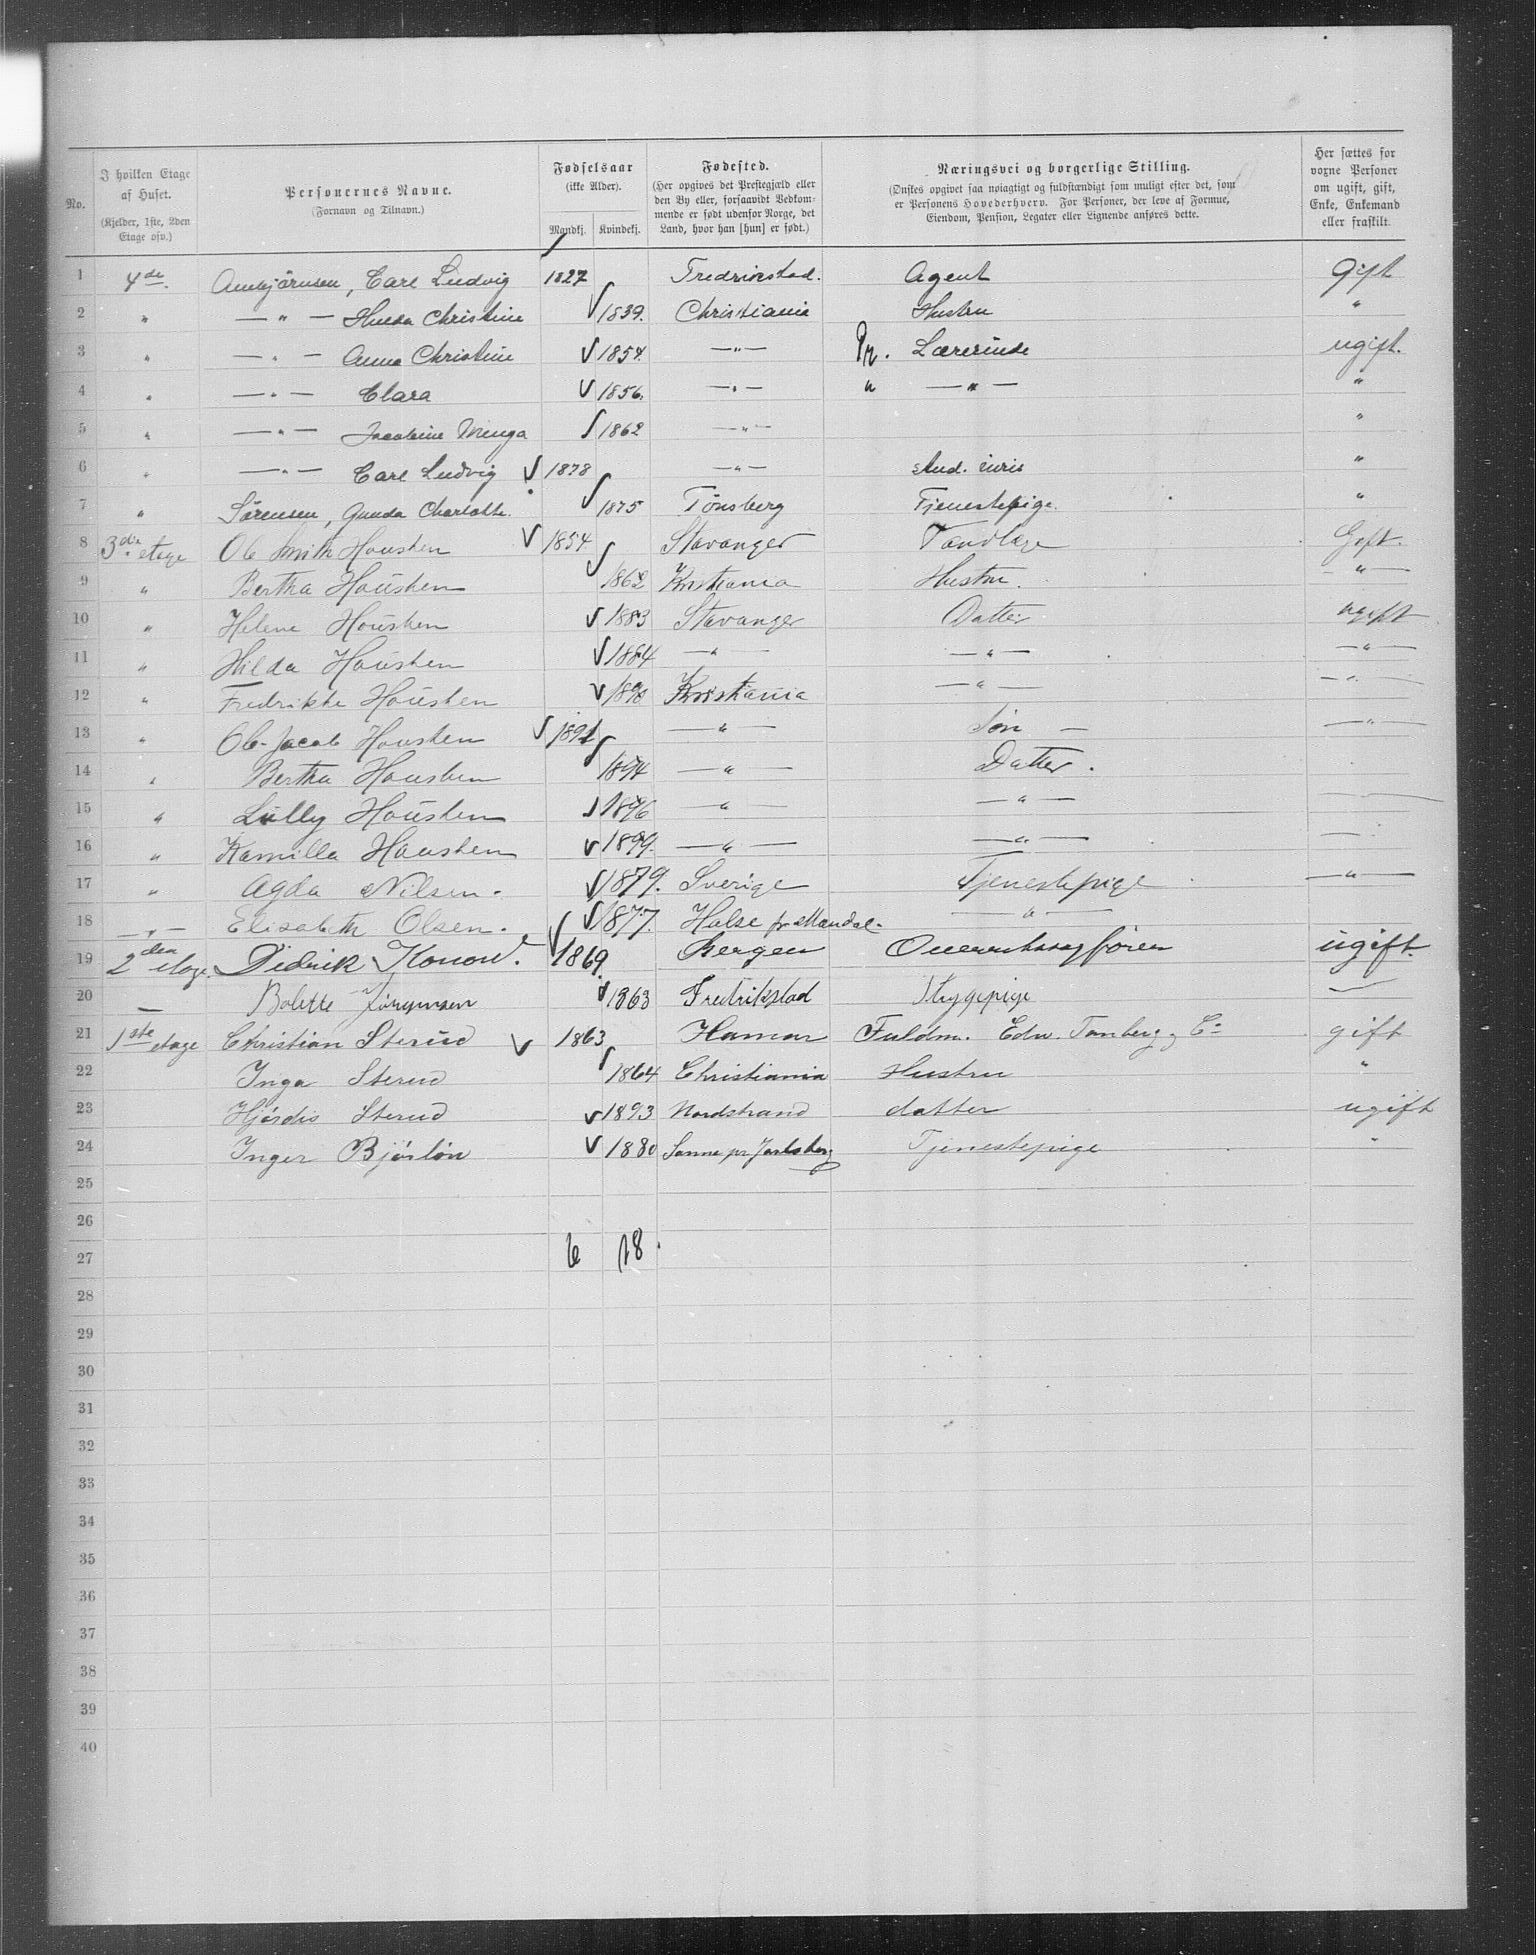 No.
I hvilken Etage af Huset.
(Kjelder, 1ste, 2den Etage osv.)
Personernes Navne.
(Fornavn og Tilnavn.)
Fødselsaar
(ikke Alder).
Mandkj. Kvindekj.
Fødested.
(Her opgives det Prestegjæld eller
den By eller, forsaavidt Vedkom-
mende er født udenfor Norge, det
Land, hvor han [hun] er født.)
Næringsvei og borgerlige Stilling.
(Ønskes opgivet saa nøiagtigt og fuldstændigt som muligt efter det, som
er Personens Hovederhverv. For Personer, der leve af Formue,
Eiendom, Pension, Legater eller Lignende anføres dette.
Her sættes for
voxne Personer
om ugift, gift,
Enke, Enkemand
eller fraskilt.
1 4de. Carl Ludvig 1827 Fredrikstad. Agent Gift
2 " — " — Hulda Christine 1839. Christiania Hustru "
3 " — " — Anna Christine 1854. — " — Pr. Lærerinde ugift.
4 " — " — Clara 1856. — " — " — " — "
5 " — " — Jacobine 1862 — " — "
6 " — " — Carl Ludvig 1878 — " — stud. iuris "
7 " Sørensen, Gunda Charlotte. 1875 Tønsberg Tjenestepige. "
8 3die etage Ole Smith Housken 1854 Stavanger Tandlæge Gift.
9 " Bertha Housken 1862 Kristiania Hustru. — " —
10 " Helene Housken 1883 Stavanger Datter ugift
11 " Hilda Housken 1884 — " — — " — — " —
12 " Fredrikke Housken Kristiania — " — — " —
13 " Ole Jacob Housken 1891 — " — Søn — — " —
14 " Bertha Housken 1894 — " — Datter.
15 " Lully Housken 1896 — " — — " — — " —
16 " Kamilla Housken 1899. — " — — " — — " —
17 " Agda Nilsen. 1879. Sverige Tjenestepige — " —
18 — " — Elisabeth Olsen. 1877. Halse pr Mandal. — " —
19 2den etage. Didrik Konow. 1869. Bergen Overretssagfører ugift.
20 — Bolette Jørgensen 1863 Fredrikstad Strygepige —
21 1ste etage Christian Sterud 1863 Hamar Fuldm. Edw. Tanberg & Co gift
22 Inga Sterud 1864 Christiania Hustru "
23 Hjørdis Sterud 1893 Nordstrand datter ugift
24 Inger Bjørløv 1880 Sanne pr Jarlsberg Tjenestepige "
25
26
27 6 18.
28
29
30
31
32
33
34
35
36
37
38
39
40